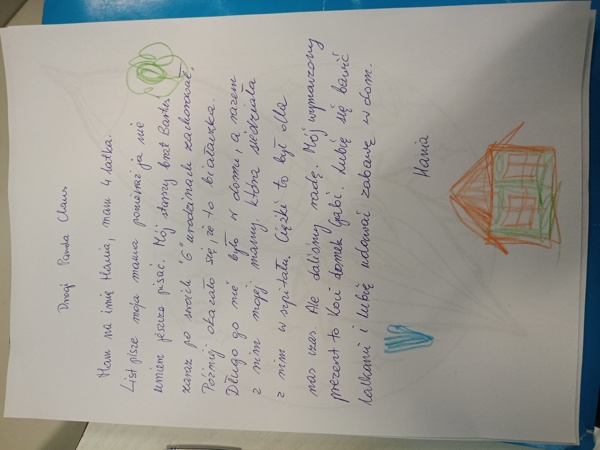 Drogi Panda Claus
Mam na imię Hania, mam 4 latka.
List pisze moja mama ponieważ ja nie
umiem jeszcze pisać. Mój starszy brat Bartek
zaraz po swoich "6" urodzinach zachorował.
Później okazało się, że to białaczka.
Długo go nie było w domu, a razem
z nim mojej mamy, która siedziała
z nim w szpitalu. Ciężki to był dla
nas czas. Ale daliśmy radę. Mój wymarzony
prezent to Koci domek Gabi. Lubię się bawić
lalkami i lubię udawać zabawę w dom.
Hania